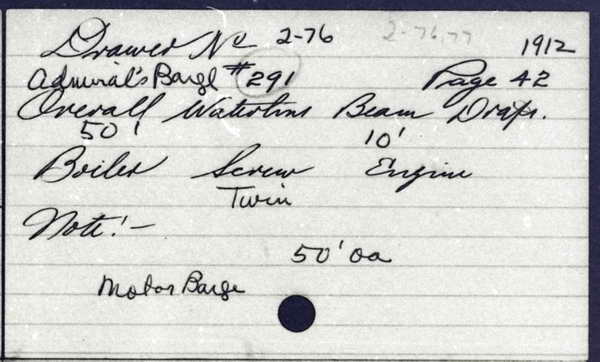 Drawer No 2-76 2-76,77 1912
Admiral's Barge #291 Page 42
Overall Waterline Beam Draft.
50' 10'
Boiler Screw Engine
Twin
Note:-
50' oa
Motor Barge